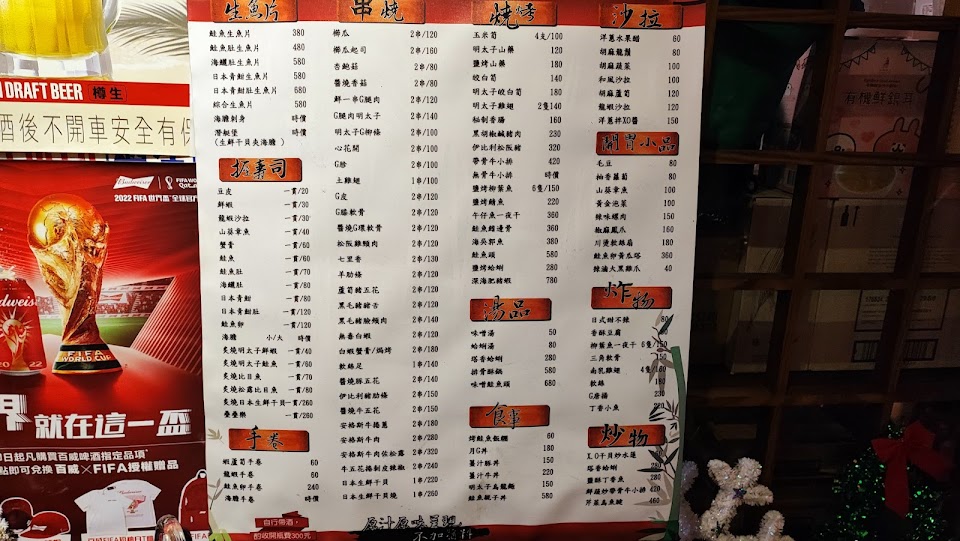 DRAFT BEER 樽生
酒後不開車安全有保
Budweiser
FIFA WORLD CUP
2022 FIFA 世界盃™全球官方
FIFA
WORLD CUP
就在這一盃
日起凡購買百威啤酒指定品項
點即可兌換 百威×FIFA授權贈品
生魚片
鮭魚生魚片 380
鮭魚肚生魚片 480
海鱺肚生魚片 580
日本青魽生魚片 580
日本青魽肚生魚片 680
綜合生魚片 580
海膽刺身 時價
潛艇堡 時價
(生鮮干貝炙海膽)
握壽司
豆皮 一貫/20
鮮蝦 一貫/30
龍蝦沙拉 一貫/30
山葵章魚 一貫/40
蟹膏 一貫/60
鮭魚 一貫/60
鮭魚肚 一貫/70
海鱺肚 一貫/80
日本青魽 一貫/80
日本青魽肚 一貫/120
鮭魚卵 一貫/120
海膽 小/大 時價
炙燒明太子鮮蝦 一貫/40
炙燒明太子鮭魚 一貫/60
炙燒比目魚 一貫/70
炙燒松露比目魚 一貫/80
炙燒日本生鮮干貝一貫/260
疊疊樂 一貫/260
手卷
蝦蘆筍手卷 60
龍蝦手卷 60
鮭魚卵手卷 240
海膽手卷 時價
自行帶酒,
酌收開瓶費300元
串燒
櫛瓜 2串/120
櫛瓜起司 2串/160
杏鮑菇 2串/80
醬燒香菇 2串/80
鮮一串G腿肉 2串/120
G腿肉明太子 2串/140
明太子G柳條 2串/140
心花開 2串/100
G胗 2串/100
土雞翅 1串/100
G皮 2串/120
G膝軟骨 2串/120
醬燒G環軟骨 2串/120
松阪雞頸肉 2串/120
七里香 2串/130
羊肋條 2串/120
蘆筍豬五花 2串/120
黑毛豬豬舌 2串/120
黑毛豬臉頰肉 2串/140
無毒白蝦 2串/120
白蝦蟹膏/焗烤 2串/180
軟絲足 1串/140
醬燒豚五花 2串/140
伊比利豬肋條 2串/150
醬燒牛五花 2串/150
安格斯牛捲蔥 2串/180
安格斯牛肉 2串/280
安格斯牛肉佐松露 2串/320
牛五花捲剝皮辣椒 2串/240
日本生鮮干貝 1串/220
日本生鮮干貝燒 1串/260
燒烤
玉米筍 4支/100
明太子山藥 120
鹽烤山藥 180
皎白筍 140
明太子皎白筍 180
明太子雞翅 2隻140
秘制香腸 160
黑胡椒鹹豬肉 230
伊比利松阪豬 320
帶骨牛小排 420
無骨牛小排 時價
鹽烤柳葉魚 6隻/150
鹽烤鯖魚 220
午仔魚一夜干 360
鮭魚鰭邊骨 360
海吳郭魚 380
鮭魚頭 580
鹽烤蛤蜊 280
深海肥豬蝦 780
湯品
味噌湯 50
蛤蜊湯 80
塔香蛤蜊 280
排骨酥鍋 580
味噌鮭魚頭 680
食事
烤鮭魚飯糰 60
月G丼 180
薑汁豚丼 180
薑汁牛丼 220
明太子烏龍麵 150
鮭魚親子丼 580
原汁原味呈現
不加醬料
沙拉
洋蔥水果醋 60
胡麻龍鬚 80
胡麻蔬菜 100
和風沙拉 100
胡麻蘆筍 120
龍蝦沙拉 120
洋蔥拌XO醬 150
開胃小品
毛豆 80
柚香蘿蔔 80
山葵章魚 100
黃金泡菜 100
辣味螺肉 150
椒麻鳳爪 160
川燙軟絲扇 180
鮭魚卵黃瓜塔 360
辣滷大黑雞爪 40
炸物
日式甜不辣 80
香酥豆腐
柳葉魚一夜干 6隻/150
三角軟骨 150
南乳雞翅 4隻/160
軟絲 180
G唐揚
丁香小魚
炒物
X.O干貝炒水蓮
塔香蛤蜊 280
鹽酥丁香魚 280
鮮蔬炒帶骨牛小排 420
芹菜烏魚腱 460
有機鮮銀耳